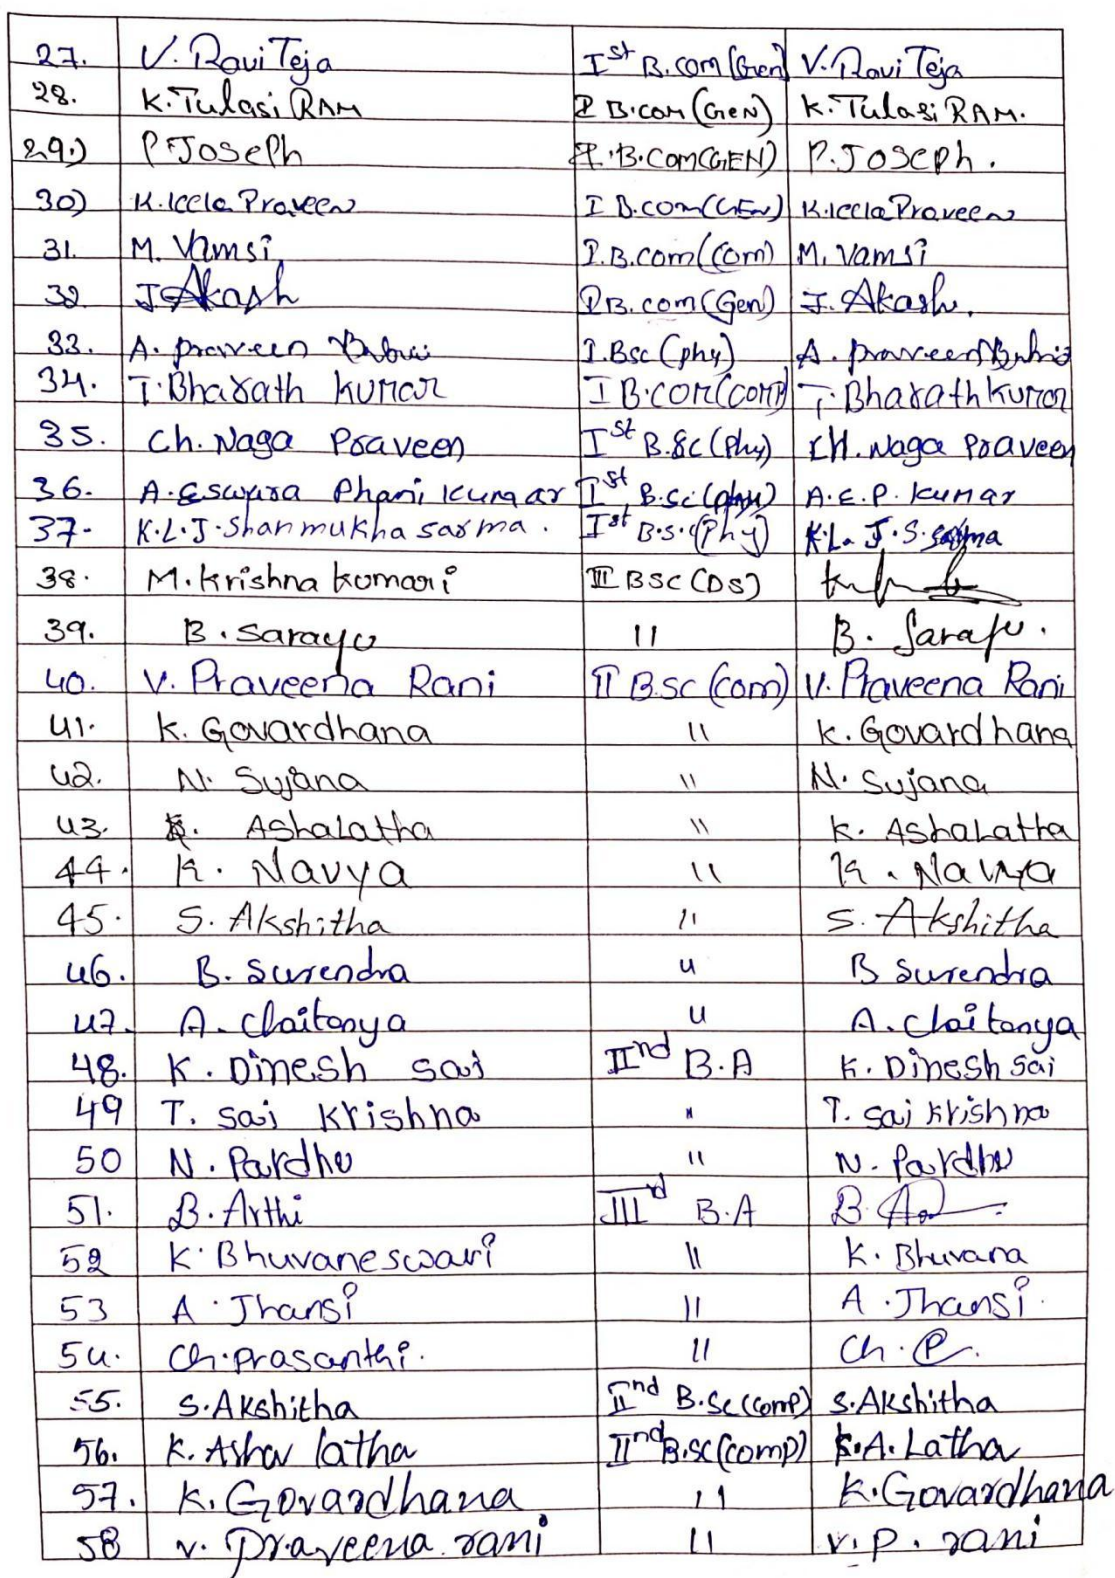 27. V. Ravi Teja Ist B.com (Gen) V. Ravi Teja
28. K. Tulasi RAM I B.com (GeN) K. Tulasi RAM.
29.) P. JOSEPh I. B.COM(GEN) P. JOSEPh.
30) K. leela Praveen I B.com(GEN) K. leela Praveen
31. M. Vamsi I.B.com(Com) M. Vamsi
32. J. Akash I B.com (Gen) J. Akash.
33. A. praveen Babu I.Bsc (phy) A. praveen Babu
34. T. Bharath kumar I B.com(comp) T. Bharath kumar
35. Ch. Naga Praveen Ist B.Sc (Phy) CH. Naga Praveen
36. A. Eswara Phani kumar Ist B.Sc (phy) A.E.P. kumar
37- K.L.J. Shanmukha sarma. Ist B.S.c(Phy) K.L.J.S. sarma
38. M. Krishna kumari III BSC (DS)
39. B. Sarayu 11 B. Sarayu.
40. V. Praveena Rani II B.SC (com) V. Praveena Rani
41. K. Govardhana 11 K. Govardhana
42. N. Sujana 11 N. Sujana
43. K. AShaLatha 11 K. AShaLatha
44. K. Navya 11 K. Navya
45. S. Akshitha 11 S. Akshitha
46. B. Surendra u B Surendra
47. A. Chaitanya u A. Chaitanya
48. K. Dinesh sai IInd B.A K. Dinesh sai
49 T. sai Krishna " T. sai Krishna
50 N. Pardhu 11 N. Pardhu
51. B. Arthi IIIrd B.A B.
52 K. Bhuvaneswari 11 K. Bhuvana
53 A. Jhansi 11 A. Jhansi.
54. Ch. prasanthi. 11 Ch. P.
55. S. Akshitha IInd B.Sc (comp) S. Akshitha
56. K. Asha latha IInd B.sc (comp) K.A. Latha
57. K. Govardhana 11 K. Govardhana
58 v. Praveena rani 11 v. P. rani